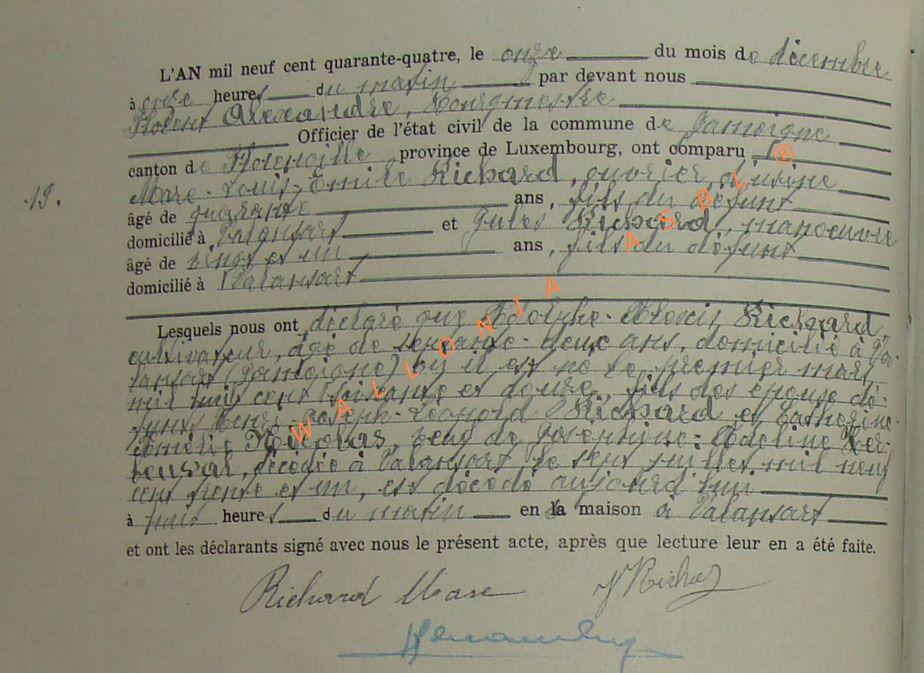 L'AN mil neuf cent quarante-quatre, le onze du mois de décembre
à onze heures du matin par devant nous
Florent Alexandre, Bourgmestre
Officier de l'état civil de la commune de Jamoigne
canton de Florenville province de Luxembourg, ont comparu 1°
13.
Marc-Louis-Emile Richard, ouvrier d'usine
âgé de quarante ans, fils du défunt
domicilié à Valansart et Jules Richard, manoeuvre
âgé de vingt et un ans, fils du défunt
domicilié à Valansart
Lesquels nous ont déclaré que Adolphe-Alexis Richard,
cultivateur, âgé de septante-deux ans, domicilié à Va-
lansart (Jamoigne) où il est né le premier mars
mil huit cent soixante et douze, fils des époux dé-
funts Henri-Joseph-Léopold Richard et Catherine-
Nicolas, veuf de Joséphine-Adeline
décédée à Valansart, le sept juillet mil neuf
cent trente et un, est décédé aujourd'hui
à huit heures du matin en sa maison à Valansart
et ont les déclarants signé avec nous le présent acte, après que lecture leur en a été faite.
Richard Marc J Richard
WALLONIA ASBL ®